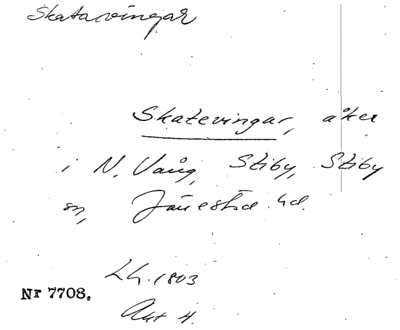 Skatavingar
Skatevingar, åker
i N. Vång, Stiby, Stiby
sn, Järrestad hd.
LH. 1803
Nr 7708.
Akt 4.